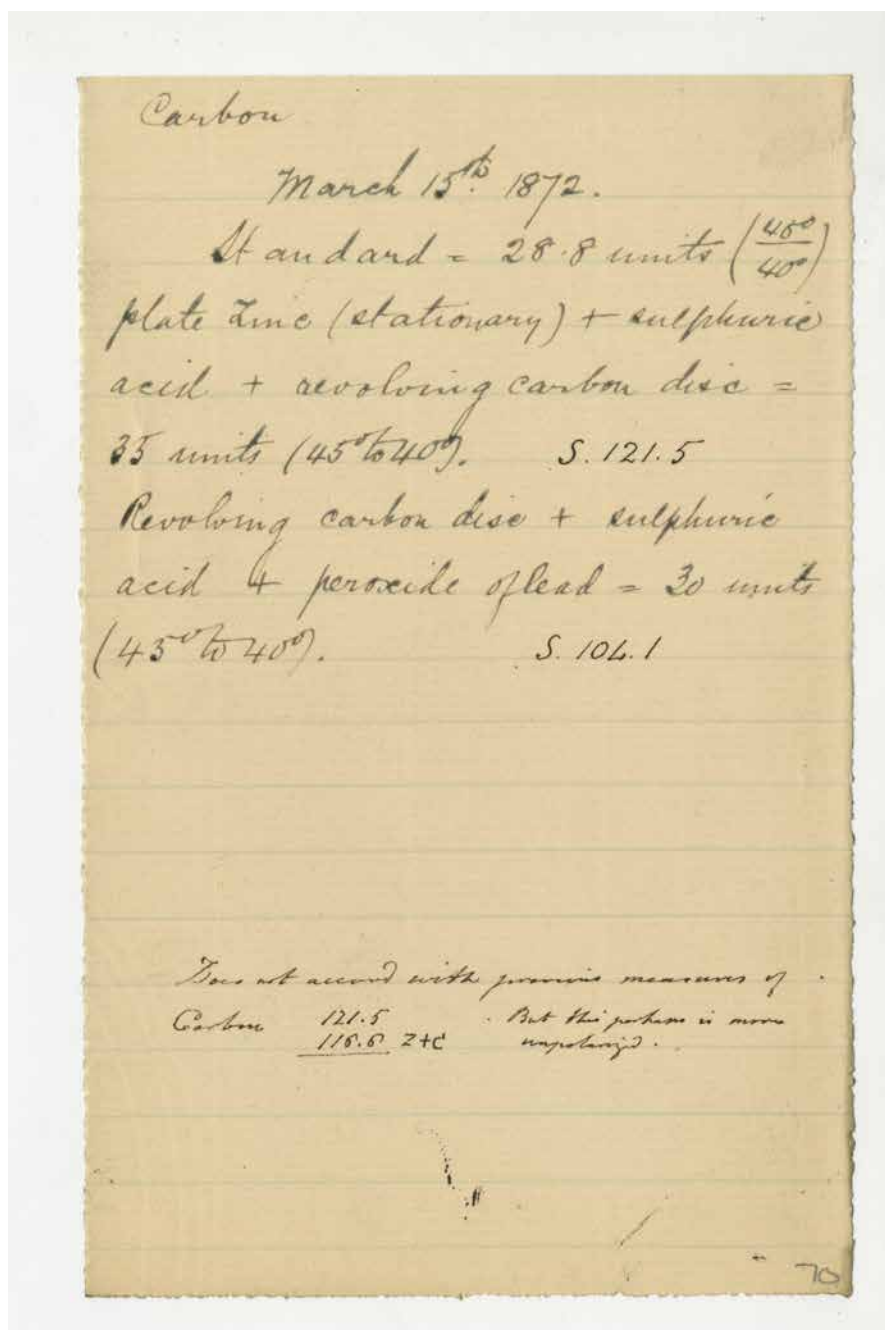 Carbon
March 15th. 1872.
Standard = 28.8 units (45°/40°)
plate Zinc (stationary) + sulphuric
acid + revolving carbon disc =
35 units (45° to 40°). S. 121.5
Revolving carbon disc + sulphuric
acid + peroxide of lead = 30 units
(45° to 40°). S. 104.1
Does not accord with previous measures of
Carbon 121.5 . But this perhaps is more
116.6 Z+C unpolarized.
70